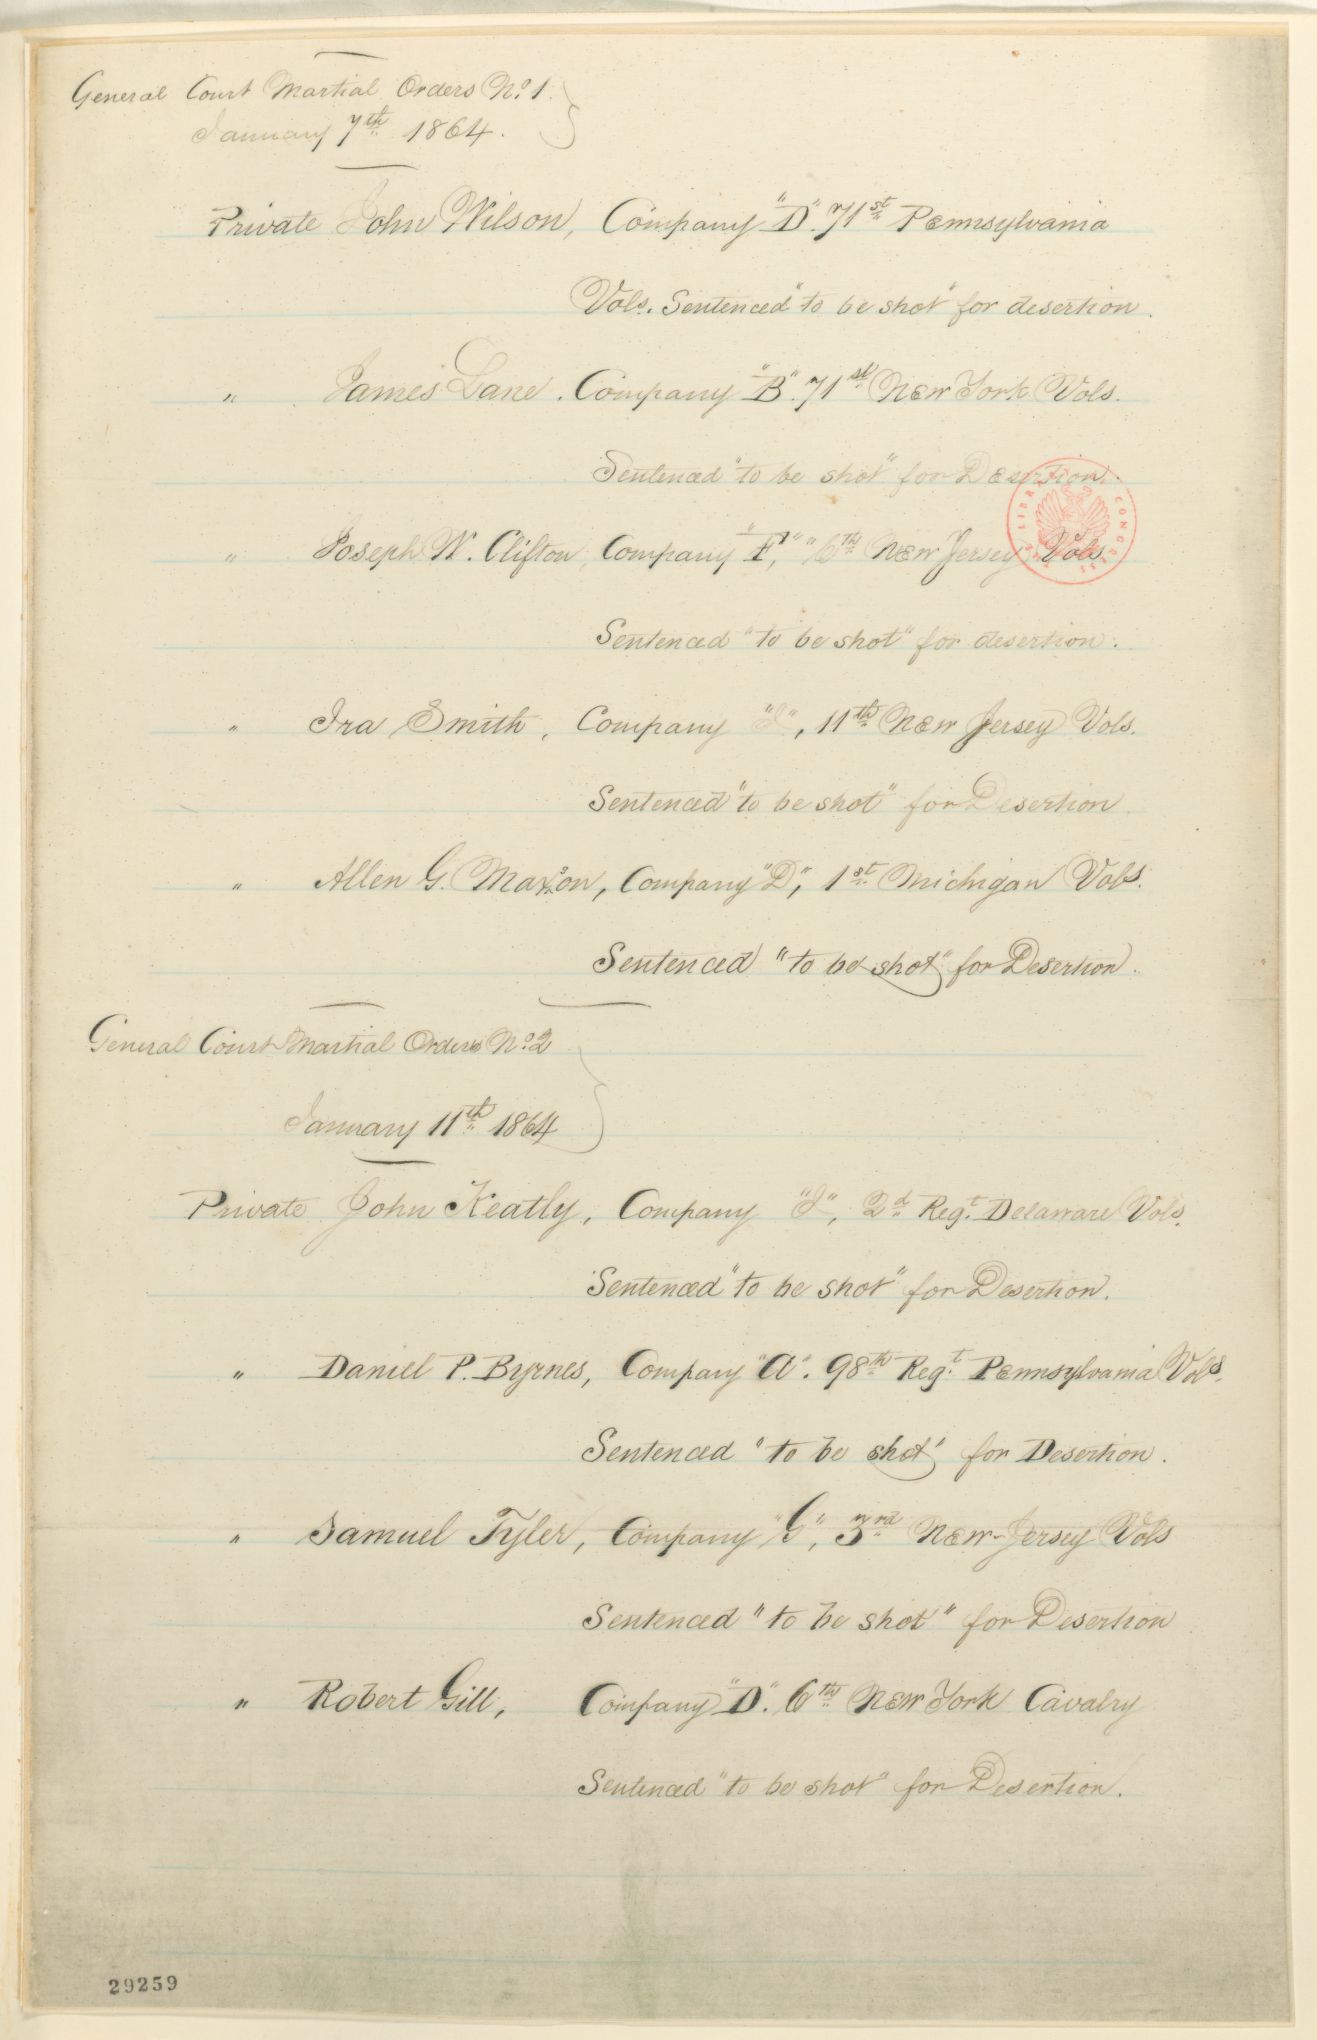 General Court Martial Orders No. 1.
January 7th 1864.
Private John Wilson, Company "D". 71st Pennsylvania
Vols. Sentenced "to be shot" for desertion.
" James Lane. Company "B". 71st New York Vols.
Sentenced "to be shot" for Desertion.
" Joseph W. Clifton, Company "F," "6th New Jersey Vols.
Sentenced "to be shot" for desertion.
" Ira Smith, Company "I", 11th New Jersey Vols.
Sentenced "to be shot" for Desertion.
" Allen G. Maxson, Company "D", 1st Michigan Vols.
Sentenced "to be shot" for Desertion.
General Court Martial Orders No. 2
January 11th 1864
Private John Keatly, Company "I", 2d Regt. Delaware Vols.
Sentenced "to be shot" for Desertion.
" Daniel P. Byrnes, Company "A". 98th Regt. Pennsylvania Vols.
Sentenced "to be shot" for Desertion.
" Samuel Tyler, Company "G", 3rd New-Jersey Vols
Sentenced "to be shot" for Desertion
" Robert Gill, Company "D". 6th New York Cavalry
Sentenced "to be shot" for Desertion.
29259